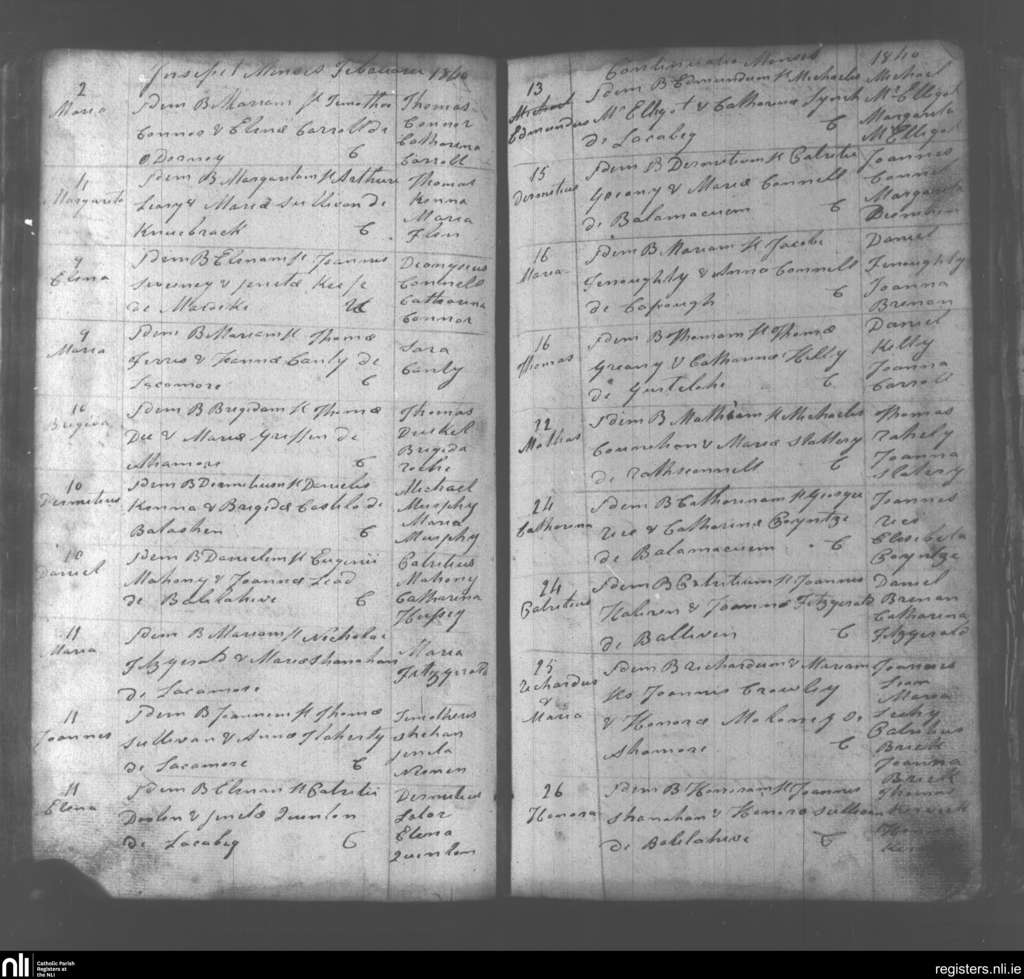 Incipit Mensis Februarii 1840
2
Maria
Idem B Mariam fl Timothei
Connor & Elenæ Carroll de
O Dorney C
Thomas
Connor
Catharina
Carroll
4
Margarita
Idem B Margaritam fl Arthuri
Leary & Mariæ Sullivan de
Knuebrack C
Thomas
Kenna
Maria
Elena
Idem B Elenam fl Joannis
Sweeney & Keefe
de
Dionysius
Connell
Catharina
Connor
9
Maria
Idem B Mariam fl Thomæ
Ferris & Joannæ Canty de
Lacamore C
Sara
Canty
10
Brigida
Idem B Brigidam fl Thomæ
Dee & Mariæ Griffin de
Ahamore C
Thomas
Driskel
Brigida
Roche
10
Dermitius
Idem B Dermitium fl Danielis
Kenna & Brigidæ Costelo de
Balashen C
Michael
Murphy
Maria
Murphy
10
Daniel
Idem B Danielem fl Eugenii
Mahony & Joannæ Lead
de Bablahive C
Patritius
Mahony
Catharina
Hussey
11
Maria
Idem B Mariam fl Nicholai
Fitzgerald & Mariæ Shanahan
de Lacamore
Maria
Fitzgerald
11
Joannes
Idem B Joannem fl Thomæ
Sullivan & Annæ Flaherty
de Lacamore C
Timotheus
Shehan
11
Elena
Idem B Elenam fl Patritii
Doolan & Quenlan
de Lacabeg C
Dermitius
Lalor
Elena
Quenlan
Continuatio Mensis 1840
13
Edmundus
Idem B Edmundum fl Michaelis
Mc Elligot & Catharinæ Lynch
de Lacabeg C
Michael
Mc Elligot
Margarita
Mc Elligot
15
Dermitius
Idem B Dermitium fl Patritii
Greany & Mariæ Connell
de Balamacuem C
Joannes
Connel
Margarita
16
Maria
Idem B Mariam fl Jacobi
Fenoughty & Anna Connell
de Capough C
Daniel
Fenoughty
Joanna
Brenan
16
Thomas
Idem B Thomam fl Thomæ
Greany & Catharinæ Kelly
de C
Daniel
Kelly
Joanna
Carroll
22
Mathias
Idem B Mathiam fl Michaelis
Counihan & Mariæ Slattery
de Rathscannell C
Thomas
Rahely
Joanna
Slatery
24
Catharina
Idem B Catharinam fl Georgii
Rice & Catharinæ Poyntze
de Balamacuem C
Joannes
Rice
Elisabeta
Poyntze
24
Patritius
Idem B Patritium fl Joannis
Haliven & Joannæ Fitzgerald
de Balliven C
Daniel
Brenan
Catharina
Fitzgerald
25
Richardus
&
Maria
Idem B Richardum & Mariam
Joannis Crowley
& Honoræ Mahoney de
Shamore C
Joannes
Maria
Leehy
Patritius
Brick
Joanna
Brick
26
Honora
Idem B Honoram fl Joannis
Shanahan & Honoræ Sullivan
de Bablahive C
Thomas
nli
Catholic Parish
Registers at
the NLI
registers.nli.ie